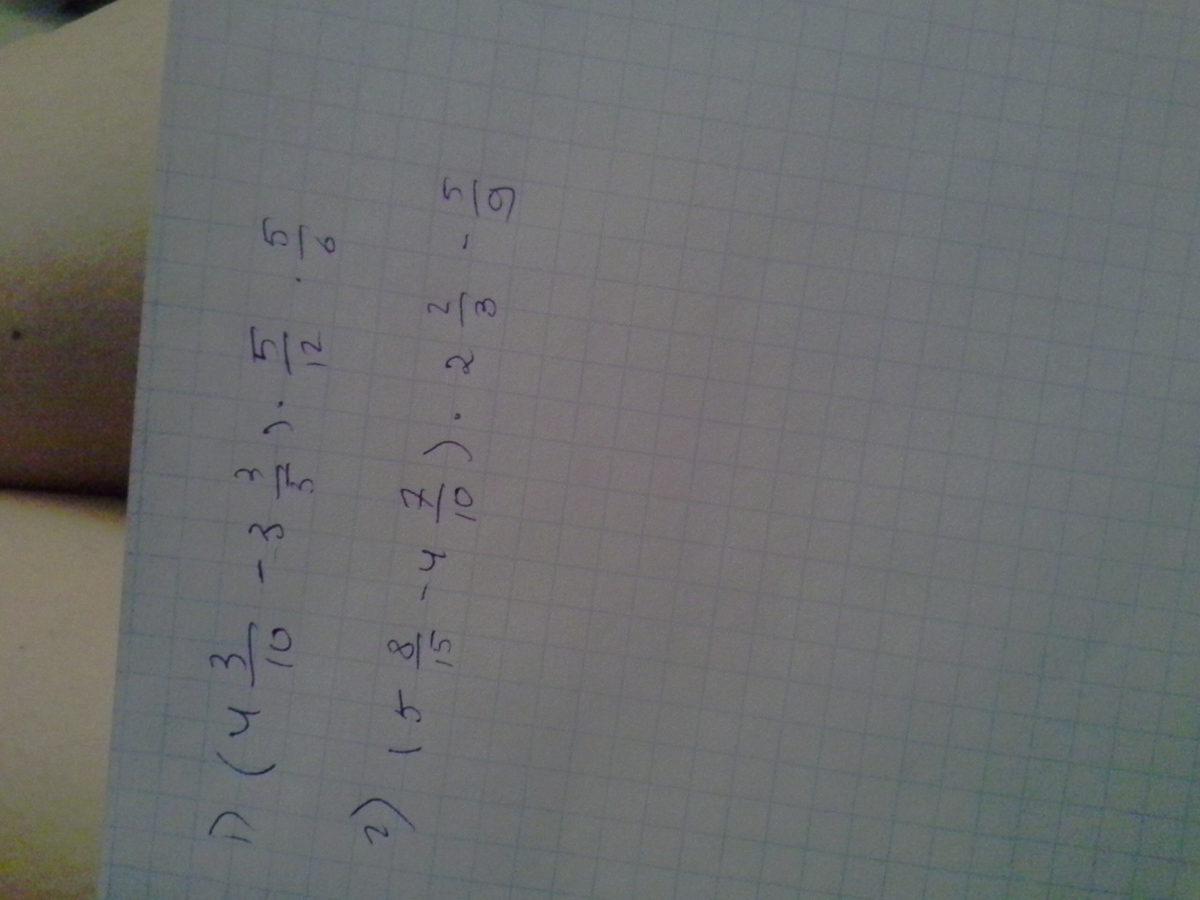 1) (4 3/10 - 3 3/5) · 5/12 · 5/6
2) (5 8/15 - 4 7/10) · 2 2/3 - 5/9